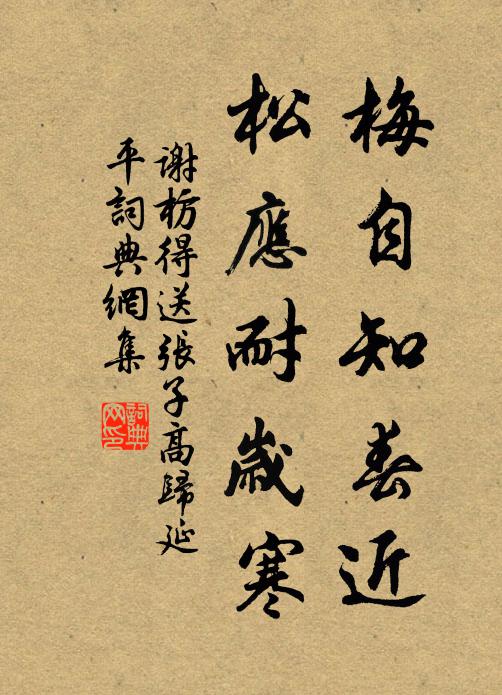 梅自知春近
松應耐歲寒
謝枋得送張子高歸延
平詞典網集
詞典網印